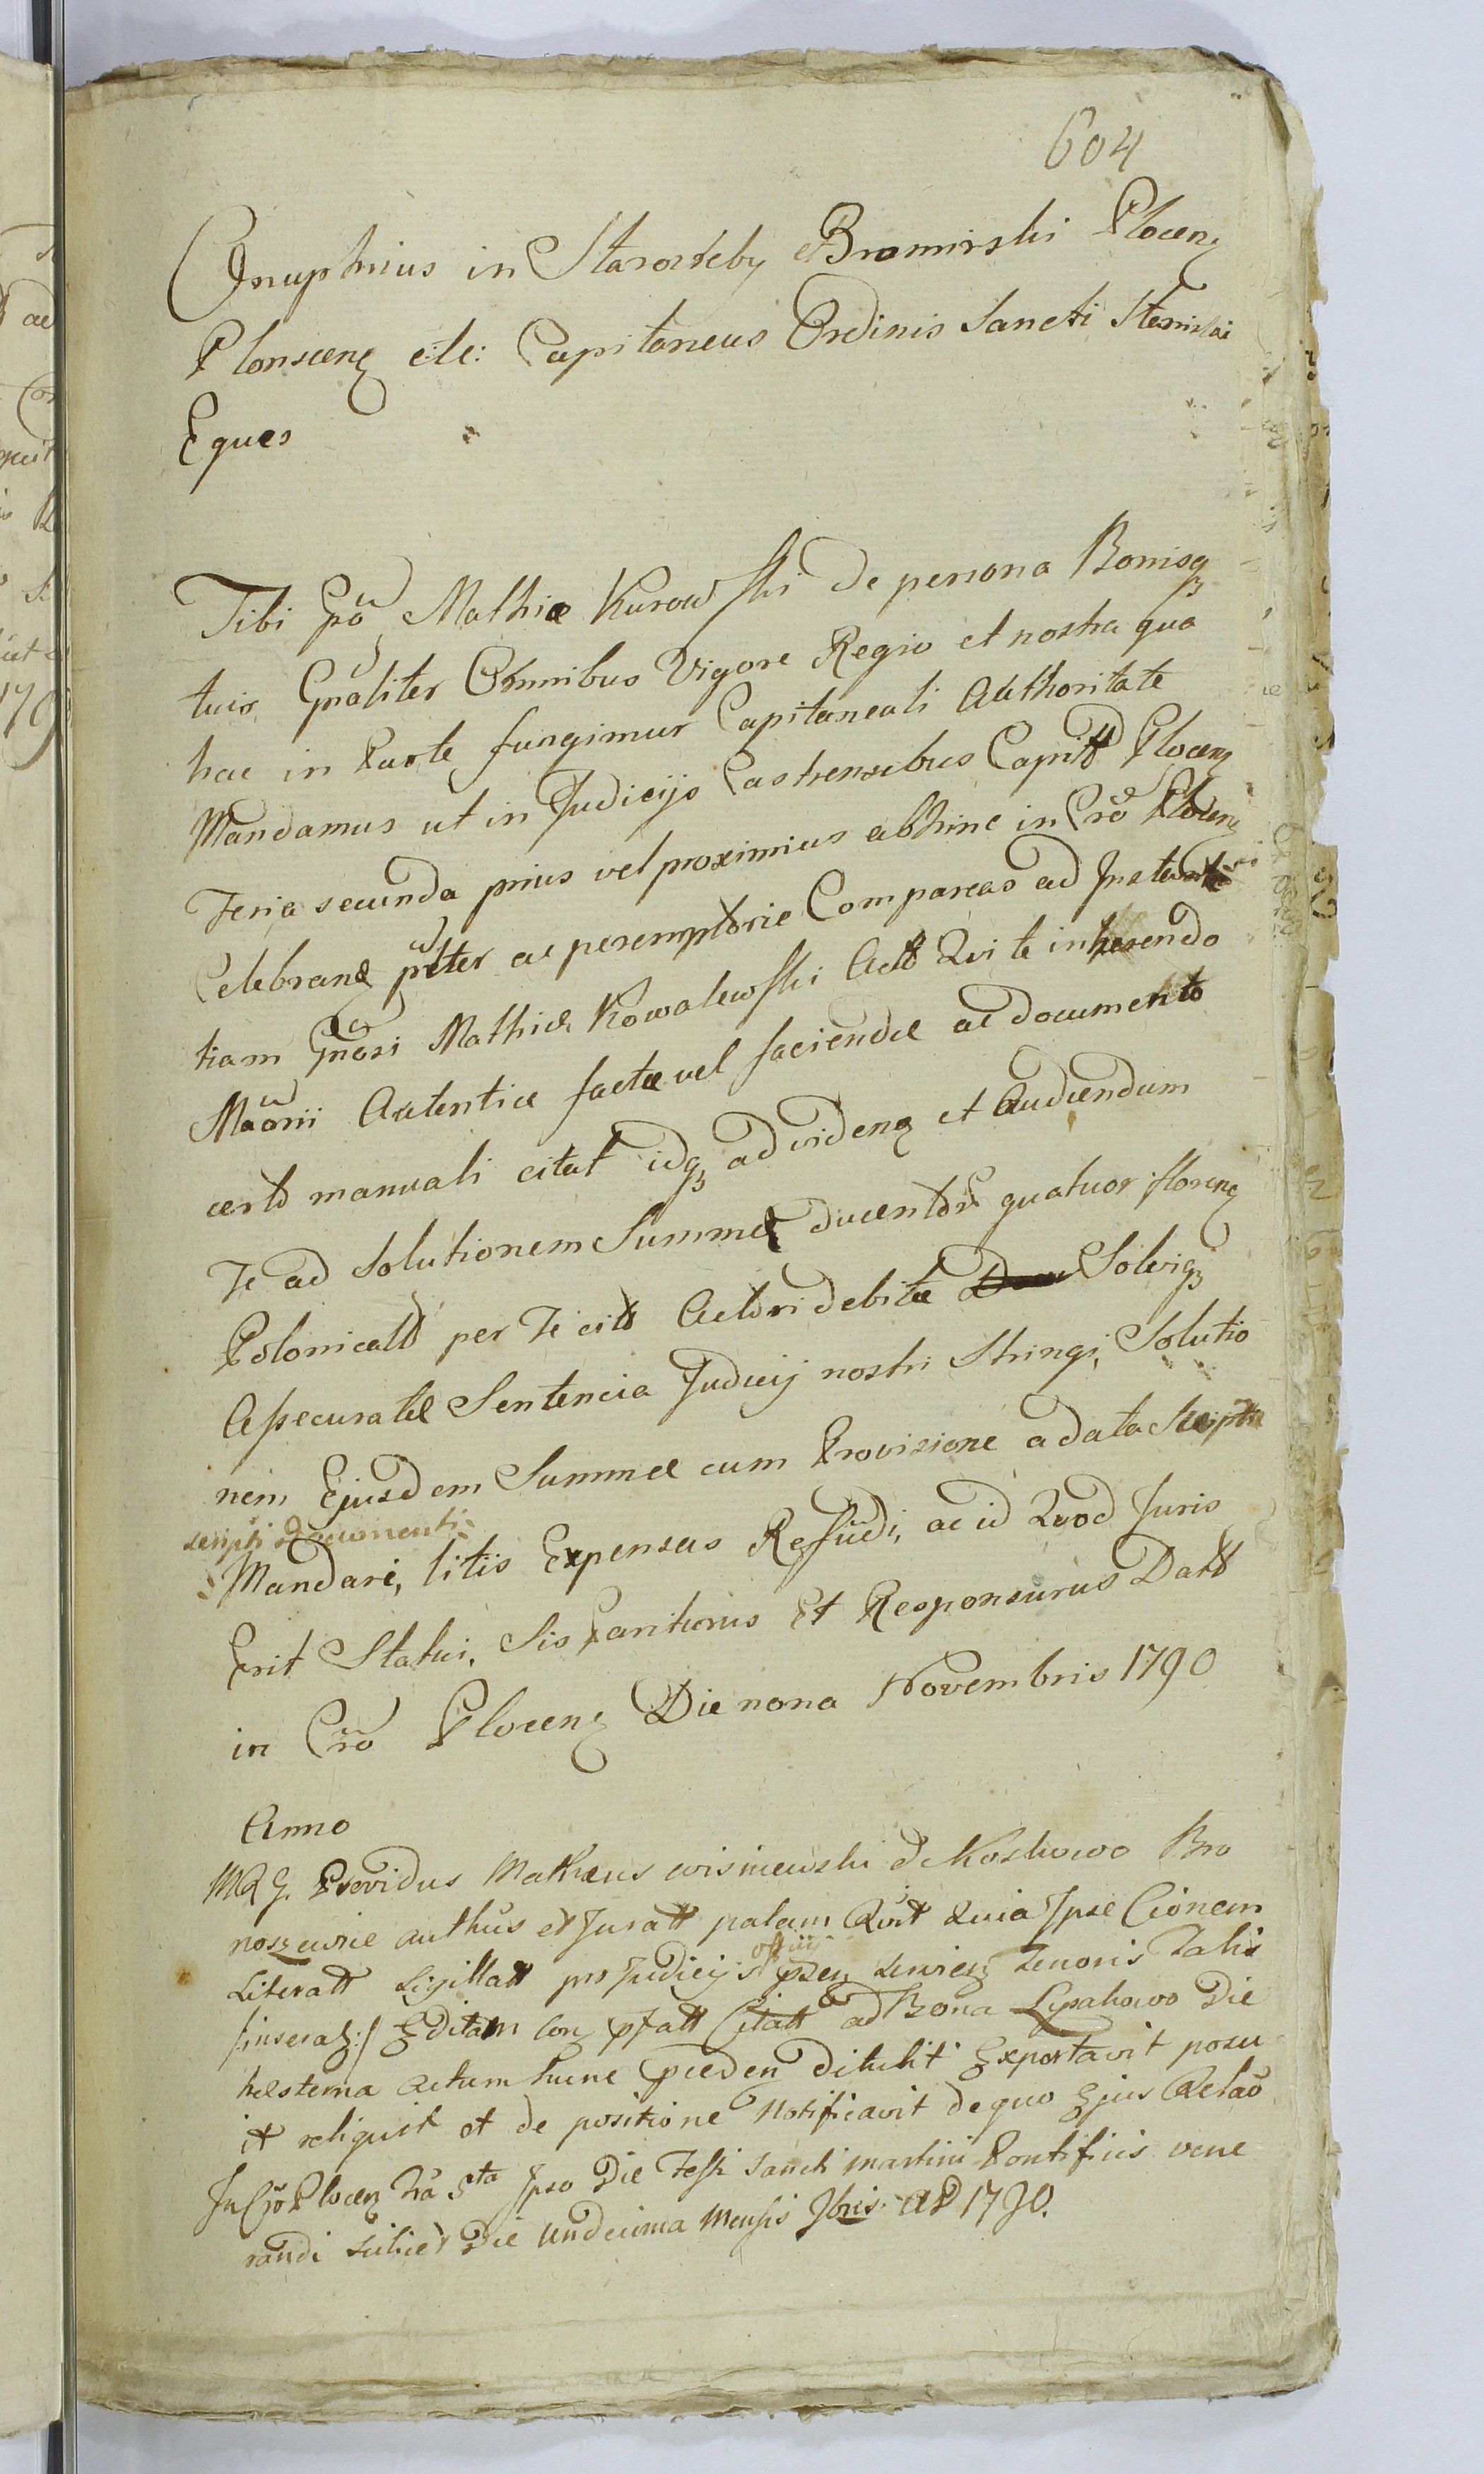 604
Onuphrius in Starozreby Bromirski Plocens
Plonscens etc: Capitaneus Ordinis Sancti Stanislai
Eques
Tibi Gso Mathiæ Kurowski de persona Bonisq
tuis Gnaliter Omnibus Vigore Regio et nostra qua
hac in Parte fungimur Capitaneali Authoritate
Mandamus ut in Judicijs Castrensibus Capitt Plocens
Feria secunda prius vel proximius abhinc in Cro Plocens
Celebrand plter ac peremptorie Compareas ad Instan
tiam Gnosi Mathiæ Kowalewski Actt Qui te inhærendo
Maonii Autenticæ factæ vel faciendæ ac documento
certo manuali citat idq ad videns et Audiendum
Te ad Solutionem Summæ ducentor quatuor floreno
Polonicatt per Te citt Actori debitæ Solviq
Assecuratæ Sentencia Judicij nostri Stringi, Solutio
nem Ejusdem Summæ cum Provisione a data
scripti documenti
Mandari, litis Expensas Refudi, ac id Quod Juris
Erit Statui, Sis Pariturus Et Responsurus Datt
in Cro Plocens Die nona Novembris 1790
Anno
MQG. Providus Mathæus wisniewski de Koskowo Bro
noszewie authus et Juratt palam Qvit Quia Ipse Cionem
Literatt Sigillatt pro Judicijs officij psen Tenoris Talis
/inserat:/ Editam Con pfatt Citatt ad Bona Lipakowo Die
hesterna actum hunc præden Ditulit Exportavit posu
it reliquit et de positione Notificavit de quo Ejus Relao
In Cro Plocen fra 5ta Ipso Die Festi Sancti Martini Pontificis vene
randi scilicet Die Undecima Mensis 9bris AD 1790.